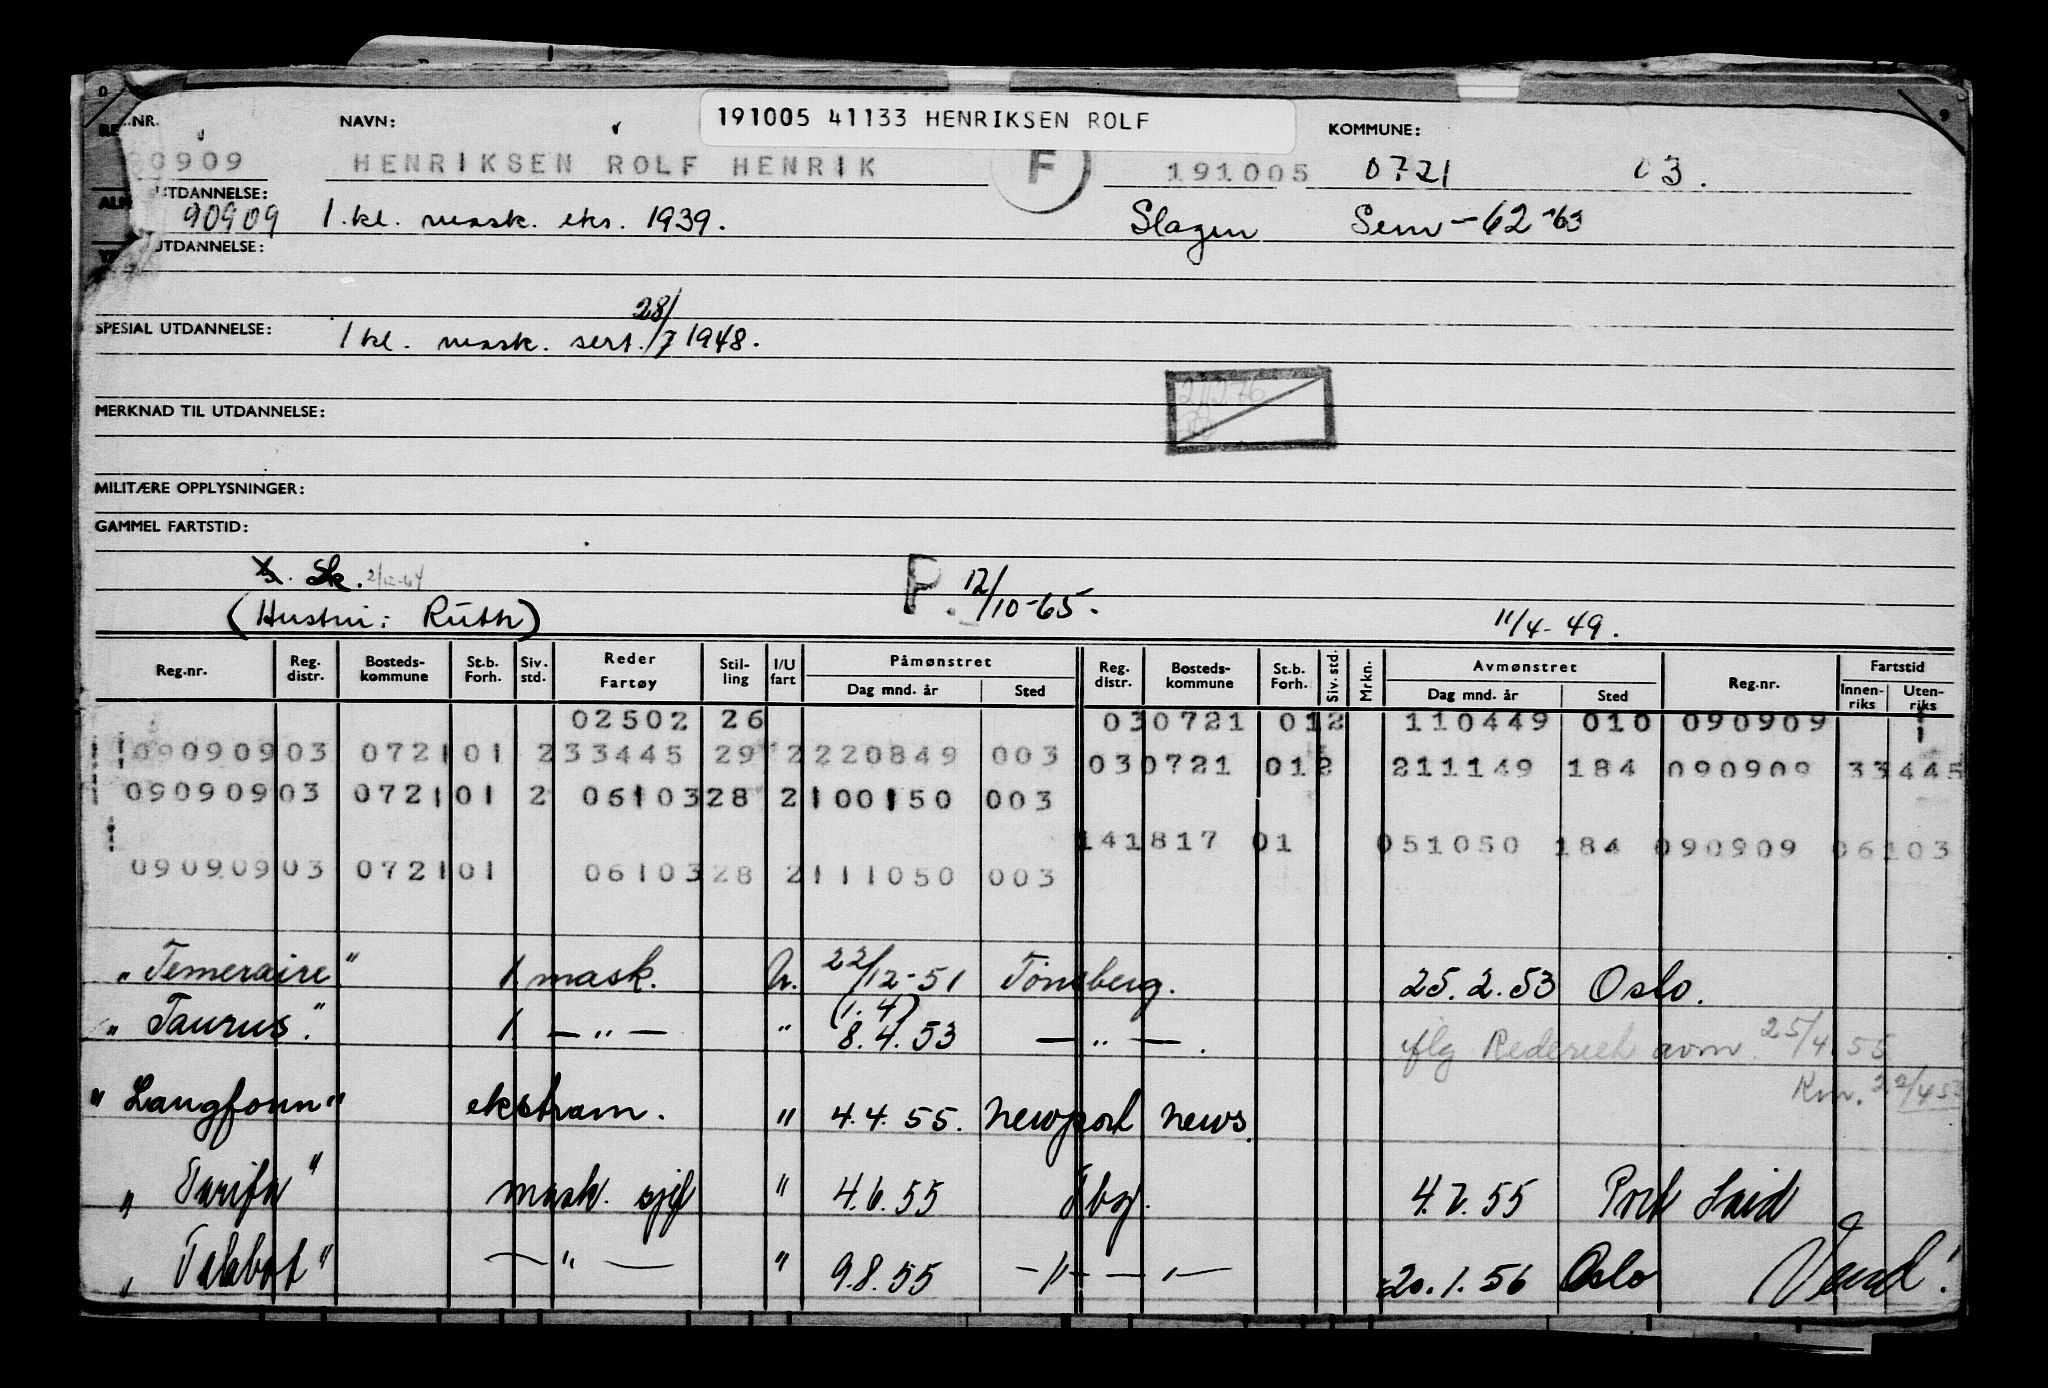 191005 41133 HENRIKSEN ROLF
NR. NAVN: KOMMUNE:
0909 HENRIKSEN ROLF HENRIK F 191005 0721 03.
UTDANNELSE:
90909 1. kl. mask. eks. 1939. Slagen Sem - 62-63
UTDANNELSE:
28/
SPESIAL UTDANNELSE: 1 kl. mask. sert. /7 1948.
MERKNAD TIL UTDANNELSE:
MILITÆRE OPPLYSNINGER:
GAMMEL FARTSTID:
Sk. 2/12-64 P. 12/10-65.
(Hustru: Ruth) 11/4-49.
Reg.nr. Reg. distr. Bosteds-kommune St.b. Forh. Siv. std. Reder Fartøy Stil-ling I/U fart Påmønstret Dag mnd. år Sted Reg. distr. Bosteds-kommune St.b. Forh. Siv. std. Mrkn. Avmønstret Dag mnd. år Sted Reg.nr. Fartstid Innen-riks Uten-riks
02502 26 030721 012 110449 010 090909
090909 03 0721 01 2 33445 29 2 220849 003 030721 012 211149 184 090909 33445
090909 03 0721 01 2 06103 28 2 100150 003
141817 01 051050 184 090909 06103
090909 03 0721 01 06103 28 2 111050 003
"Temeraire" 1 mask. U. 22/12-51 Tönsberg. 25.2.53 Oslo.
(1.4)
"Taurus." 1 — " — " 8.4.53 — " —. iflg Rederiet avm. 25/4 55
Km. 22/4 53
"Langfonn" ekstram. " 4.4.55. Newport News.
"Tarifa" mask. sjef " 4.6.55 Tbg. 4.7.55 Port Said
"Talabot" — " — " 9.8.55 — " — — " — 20.1.56 Oslo Vend!